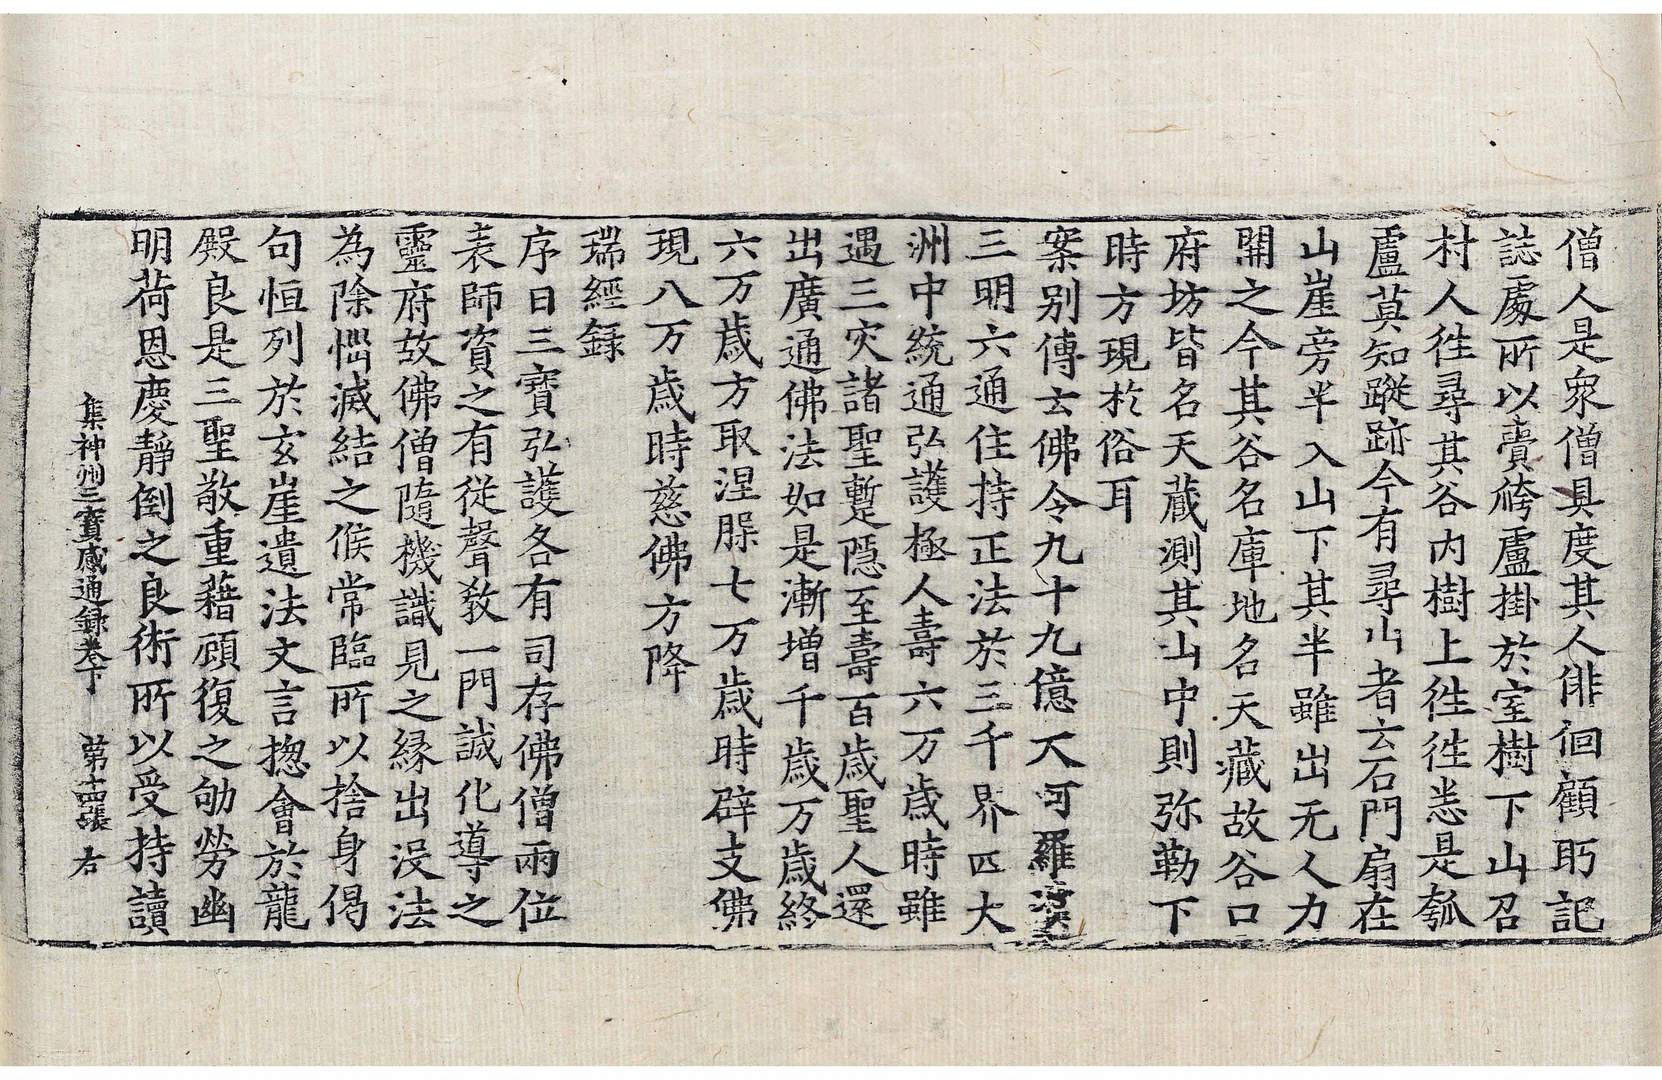 僧人是衆僧具度其人俳佪顧眄記
誌處所以賷袴盧掛於室樹下山召
村人徃尋其谷內樹上徃徃恙是瓠
盧莫知蹤跡今有尋山者云石門扇在
山崖旁半入山下其半雖出无人力
開之今其谷名庫地名天藏故谷口
府坊皆名天藏測其山中則弥勒下
時方現於俗耳
案别傳云佛令九十九億大阿羅漢
三明六通住持正法於三千界四大
洲中統通弘護極人壽六万歲時雖
遇三灾諸聖蹔隱至壽百歲聖人還
出廣通佛法如是漸增千歲万歲終
六万歲方取涅槃七万歲時辟支佛
現八万歲時慈佛方降
瑞經録
序曰三寶弘護各有司存佛僧兩位
表師資之有從聲教一門誠化導之
靈府故佛僧隨機識見之緣出没法
為除惱滅結之候常臨所以捨身偈
句恒列於玄崖遺法文言揔會於龍
殿良是三聖敬重藉顧復之劬勞幽
明荷恩慶靜倒之良術所以受持讀
集神州三寶感通録卷下 第十四張 右